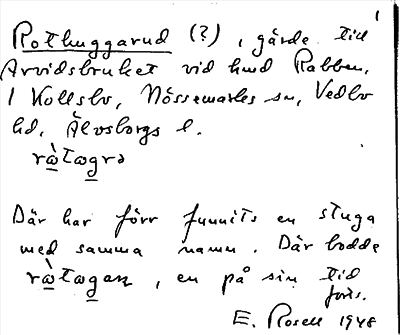 1
Rothuggarud (?), gärde till
Arvidsbruket vid hmd Rabben,
i Kollsbo, Nössemarks sn, Vedbo
hd, Älvsborgs l.
rὼtωgrə
Där har förr funnits en stuga
med samma namn. Där bodde
rὼtωgarn, en på sin tid
förs.
E. Rosell 1948